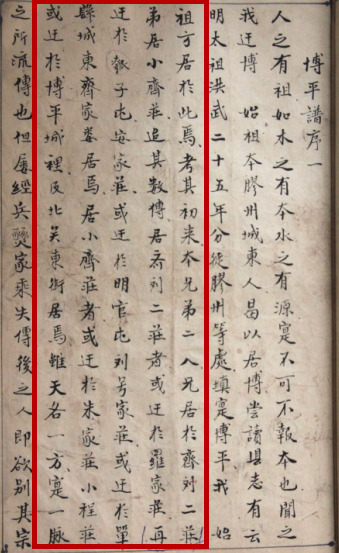 博平譜序一
人之有祖如水之有本水之有源寔不可不報本也聞之
我迁博　始祖本膠州城東人曷以居博嘗讀县志有云
明太祖洪武二十五年分徙膠州等處填寔博平我　始
祖方居於此焉考其初来本兄弟二人兄居於齊刘二莊
弟居小齊莊追其数傳居齐刘二莊者或迁於羅家莊再
迁於瓠子屯安家莊或迁於明官屯刘芳家莊或迁於單
縣城東齊家娄居焉居小齊莊者或迁於朱家莊小程莊
或迁於博平城裡及北关東街居焉雖天各一方寔一脉
之所流傳也但屡經兵燹家乘失傳後之人即欲別其宗